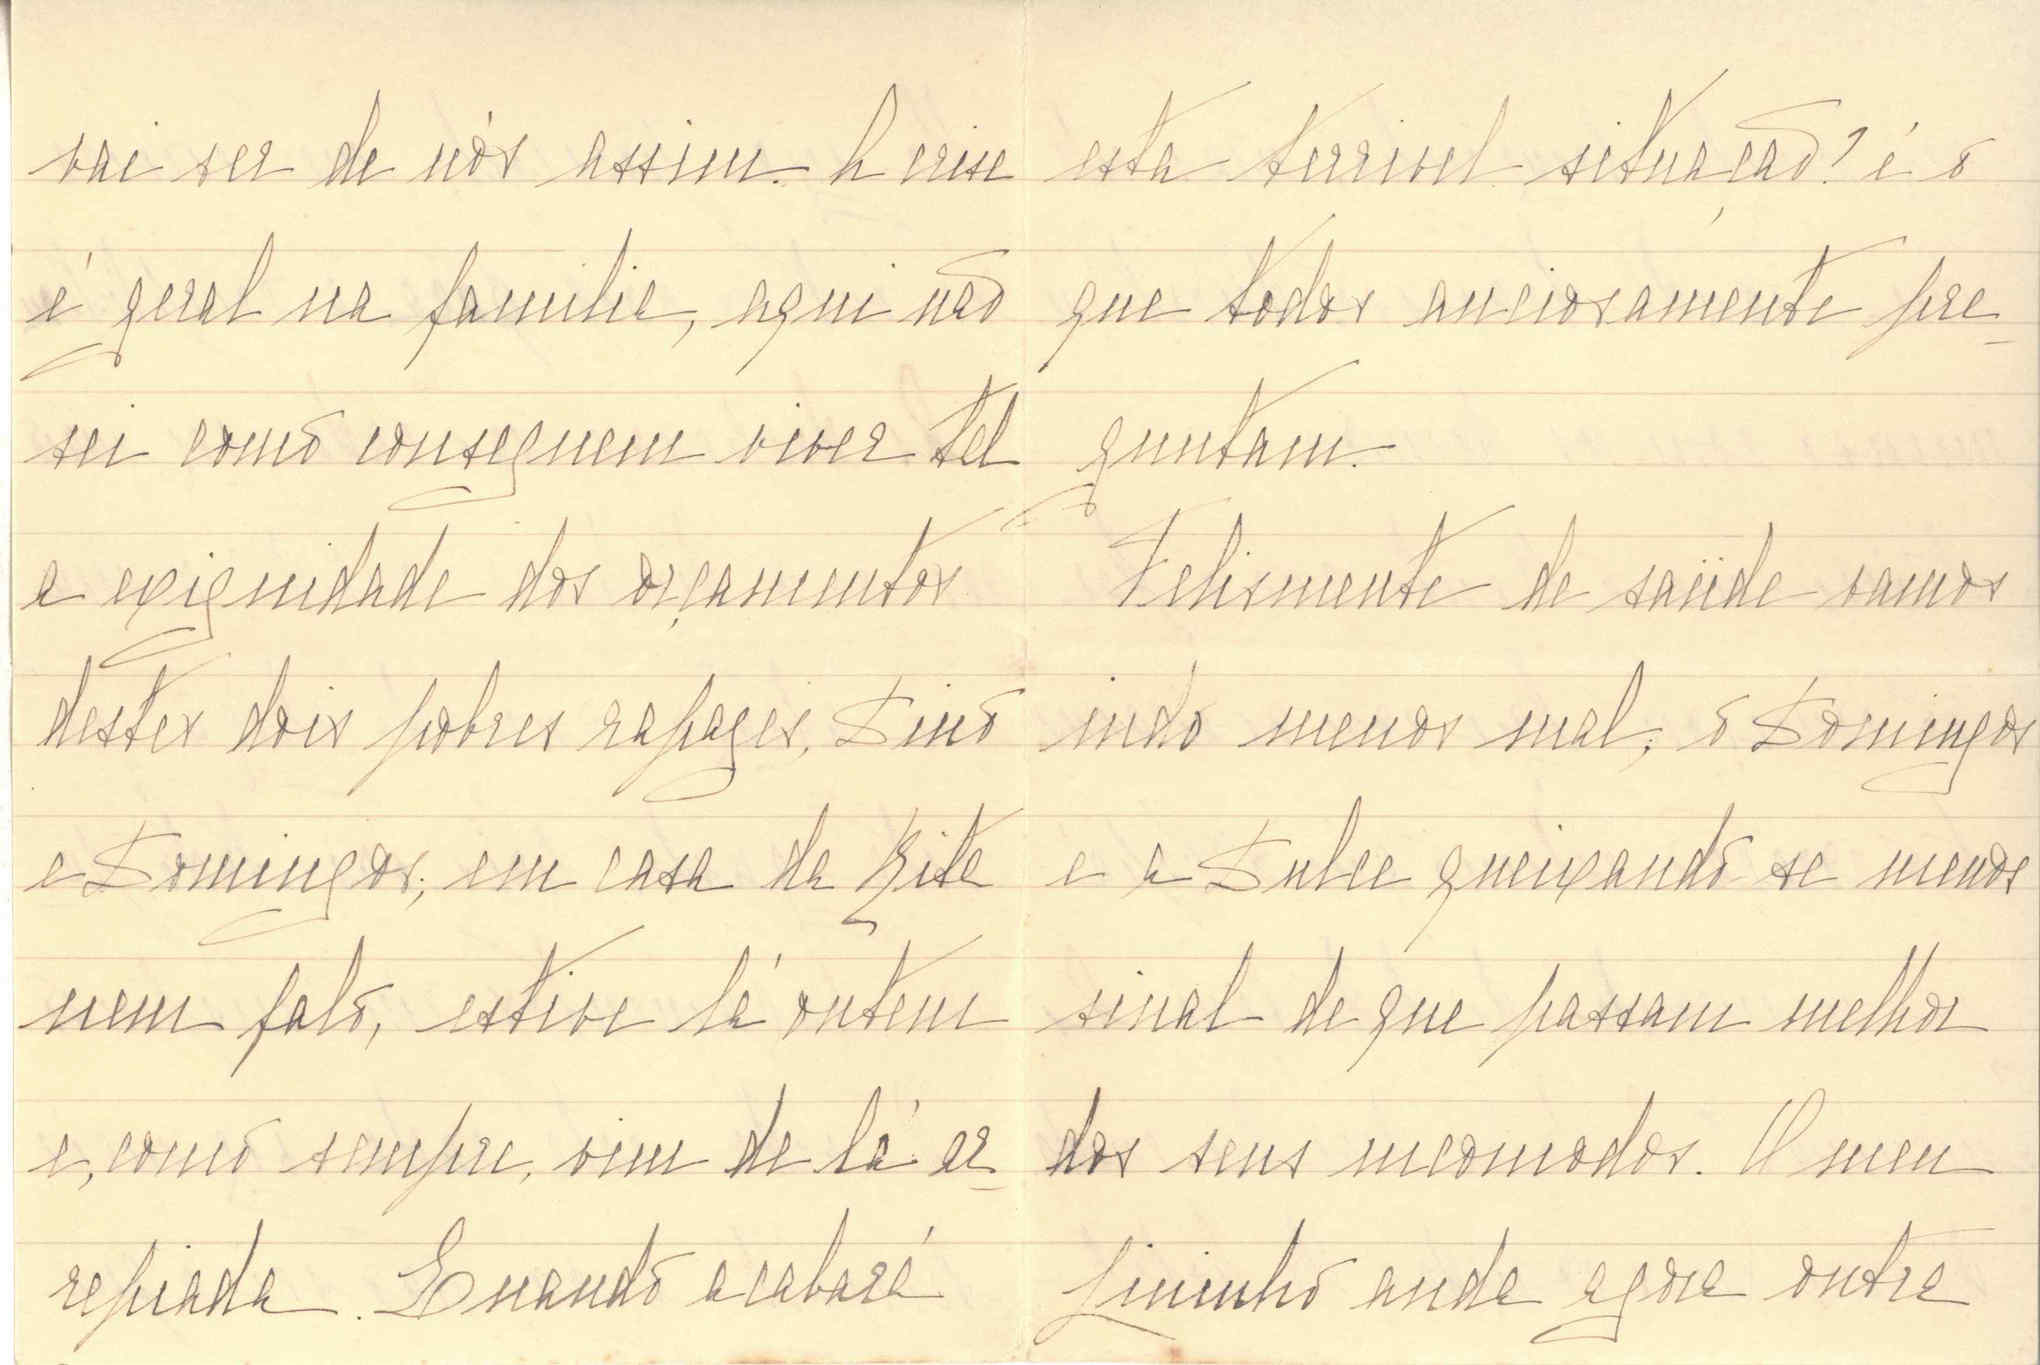 vai ser de nós assim. A crise
é geral na familia, aqui não
sei como conseguem viver tal
a exiguidade dos orçamentos
destes dois pobres rapazes, Dino
e Domingos; em casa da Zita
nem falo, estive lá ontem
e, como sempre, vim de lá ar-
repiada. Quando acabará
esta terrivel situação? é o
que todos anciosamente pre-
guntam.
Felismente de saüde vamos
indo menos mal; o Domingos
e a Dulce queixando-se menos
sinal de que passam melhor
dos seus incomodos. O meu
Lininho anda agora outra